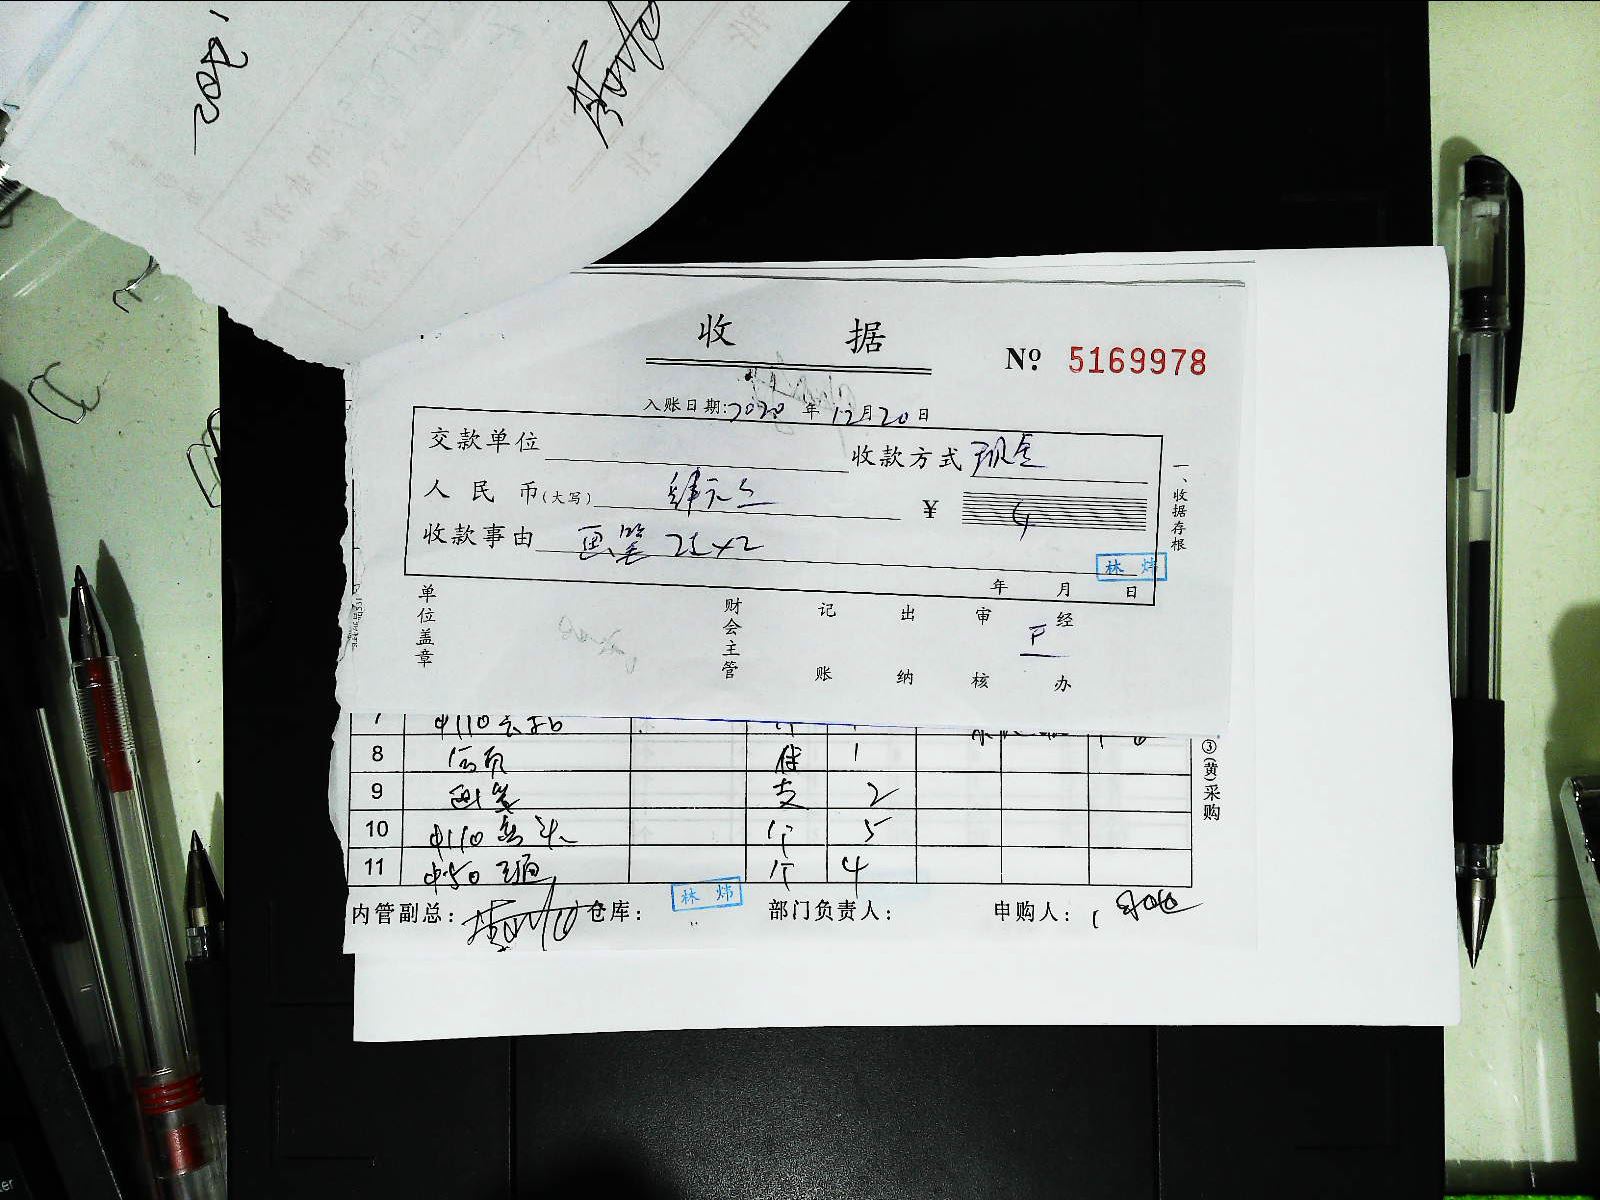 收 据
No 5169978
入账日期:2020 年 12月20日
交款单位 收款方式 现金
人 民 币(大写) 肆元正 ¥ 4
收款事由 画笔 2支×2
林 炜
年 月 日
单位盖章 财会主管 记账 出纳 审核 经办
一、收据存根
7 Φ110
8 件 1
9 画笔 支 2
10 Φ110 弯头 个 5
11 Φ50 个 4
③(黄)采购
内管副总: 仓库: 林 炜 部门负责人: 申购人: